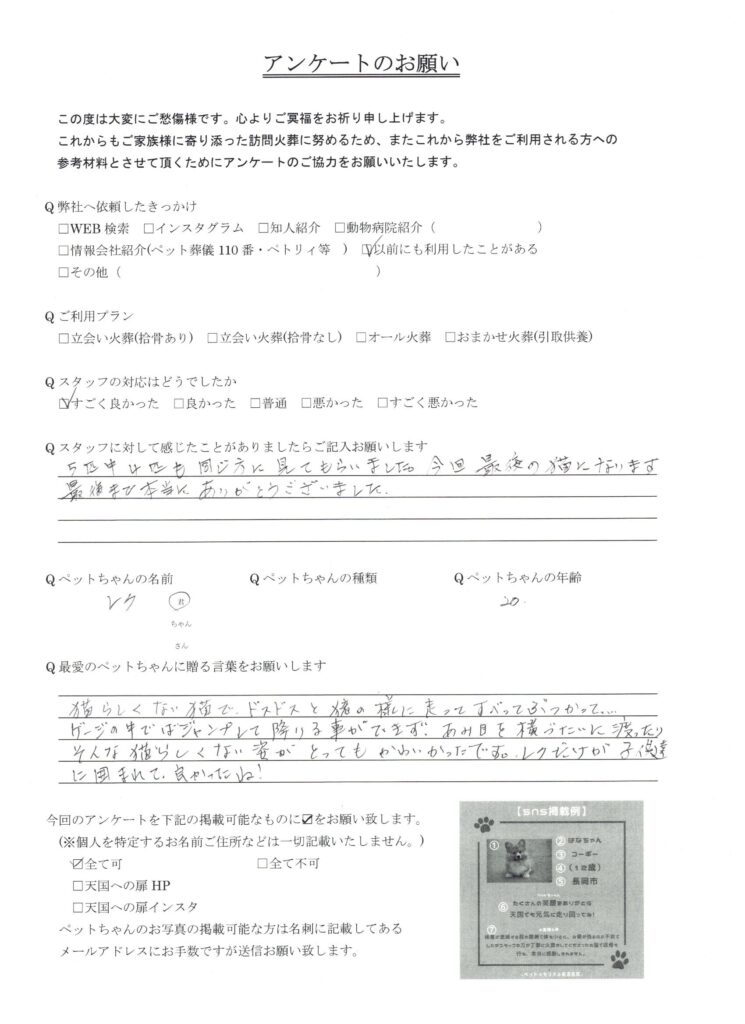 アンケートのお願い
この度は大変にご愁傷様です。心よりご冥福をお祈り申し上げます。
これからもご家族様に寄り添った訪問火葬に努めるため、またこれから弊社をご利用される方への
参考材料とさせて頂くためにアンケートのご協力をお願いいたします。
Q 弊社へ依頼したきっかけ
□WEB 検索 □インスタグラム □知人紹介 □動物病院紹介（ ）
□情報会社紹介(ペット葬儀 110 番・ペトリィ等 ） ☑以前にも利用したことがある
□その他（ ）
Q ご利用プラン
□立会い火葬(拾骨あり) □立会い火葬(拾骨なし) □オール火葬 □おまかせ火葬(引取供養)
Q スタッフの対応はどうでしたか
☑すごく良かった □良かった □普通 □悪かった □すごく悪かった
Q スタッフに対して感じたことがありましたらご記入お願いします
5匹中4匹も同じ方に見てもらいました。今回最後の猫になります
最後まで本当にありがとうございました。
Q ペットちゃんの名前 Q ペットちゃんの種類 Q ペットちゃんの年齢
レク 君 20.
ちゃん
さん
Q 最愛のペットちゃんに贈る言葉をお願いします
猫らしくない猫で、ドスドスと猿の様に走ってすべってぶつかって...
ゲージの中ではジャンプして降りる事ができず、あみ目を横づたいに渡ったり
そんな猫らしくない姿がとってもかわいかったです。レクだけが子供達
に囲まれて、良かったね!
今回のアンケートを下記の掲載可能なものに☑をお願い致します。
(※個人を特定するお名前ご住所などは一切記載いたしません。)
☑全て可 □全て不可
□天国への扉 HP
□天国への扉インスタ
ペットちゃんのお写真の掲載可能な方は名刺に記載してある
メールアドレスにお手数ですが送信お願い致します。
【sns掲載例】
① ② はなちゃん
③ コーギー
④ (12歳)
⑤ 長岡市
⑥ たくさんの笑顔をありがとう
天国でも元気に走り回ってね!
⑦